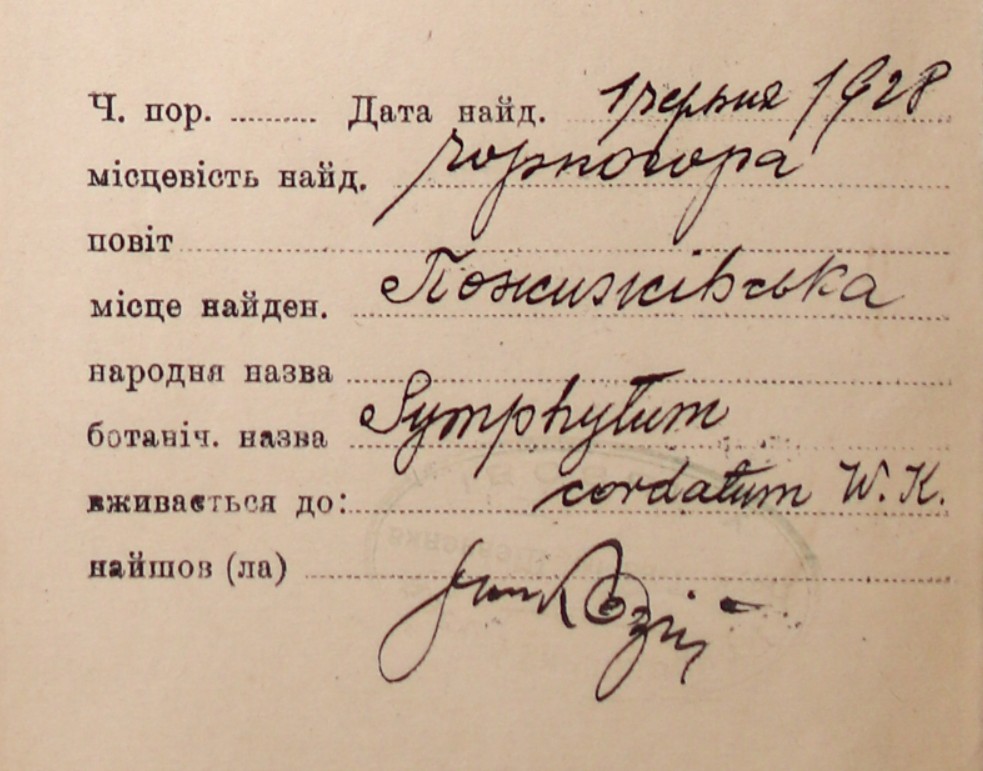 Ч. пор. ......... Дата найд. 1 червня 1928
місцевість найд. Чорногора
повіт
місце найден. Пожижівська
народня назва
ботаніч. назва Symphytum
вживається до: cordatum W. K.
найшов (ла)